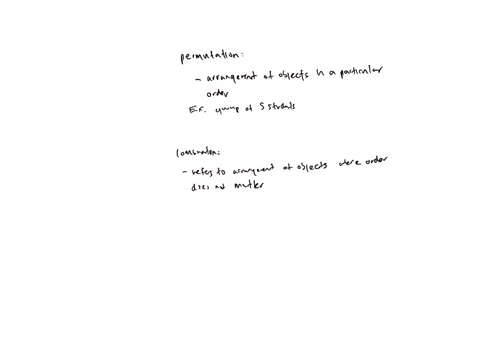 permutation:
- arrangement of objects in a particular
order
Ex. group of 5 students
Combination:
- refers to arrangement of objects where order
does not matter